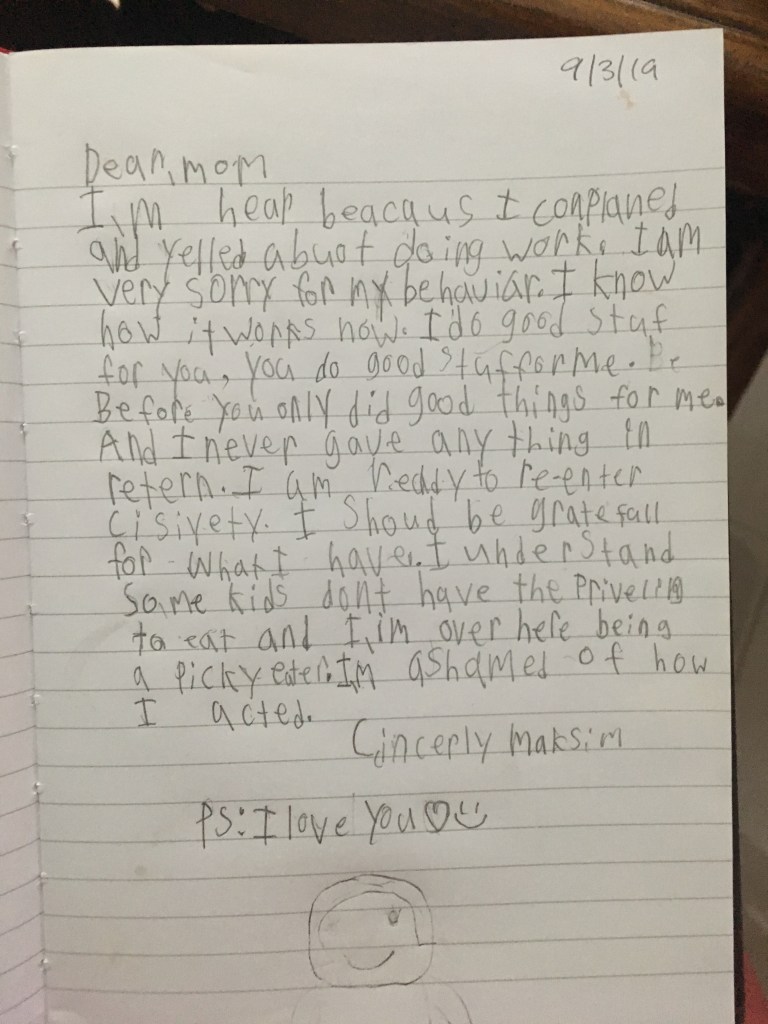 9/3/19
Dear, mom
I,m hear beacaus I conplaned
and yelled abuot doing work. I am
very sorry for my behaviar. I know
how it works now. I do good stuf
for you, you do good stuf for me. Be
Before you only did good things for me.
And I never gave any thing in
retern. I am ready to re-enter
cisiyety. I shoud be gratefull
for what I have. I understand
some kids dont have the
to eat and I,im over here being
a picky eater. I,m ashamed of how
I acted.
Cincerly Maksim
PS: I love you ♡ ☺